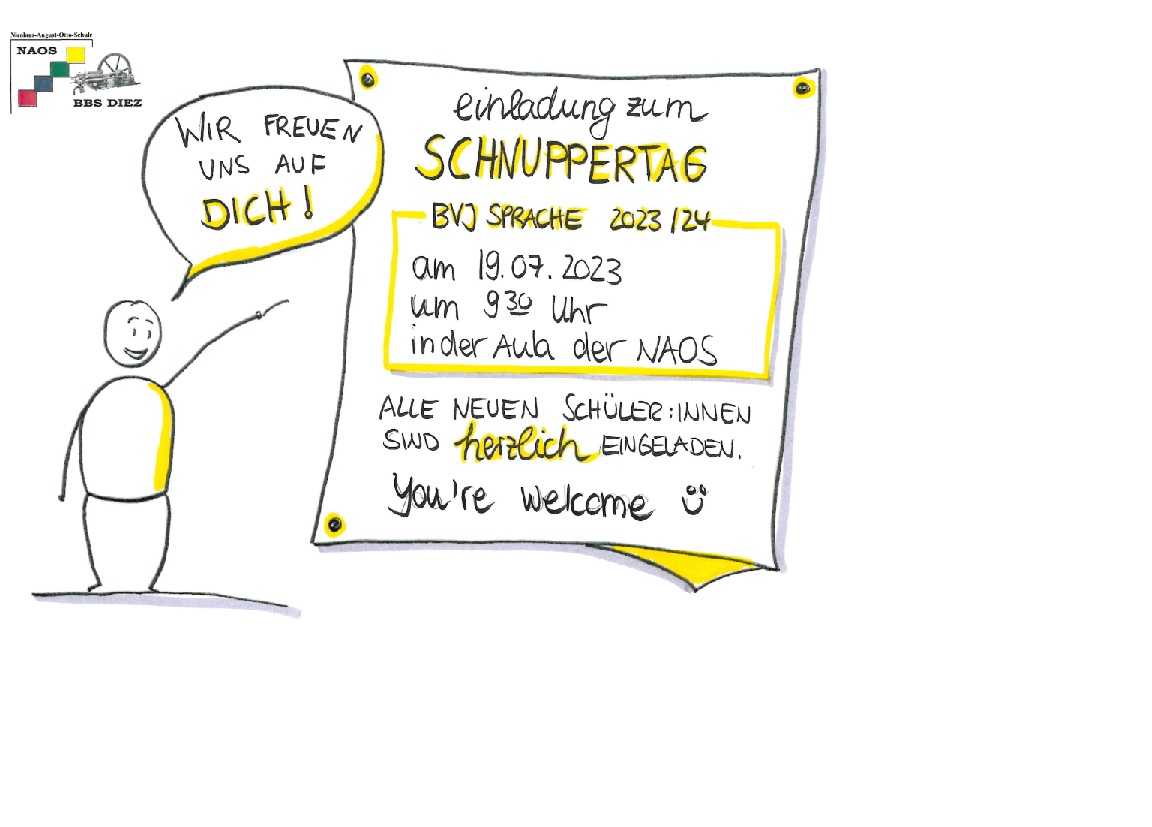 Nicolaus-August-Otto-Schule
NAOS
BBS DIEZ
WIR FREUEN
UNS AUF
DICH!
einladung zum
SCHNUPPERTAG
BVJ SPRACHE 2023/24
am 19.07.2023
um 9 30 Uhr
in der Aula der NAOS
ALLE NEUEN SCHÜLER:INNEN
SIND herzlich EINGELADEN.
You're welcome